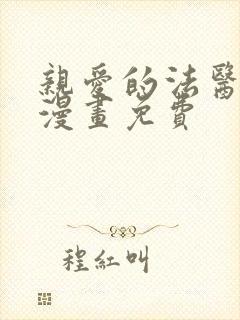 親愛的法醫
漫畫免費
程紅叫